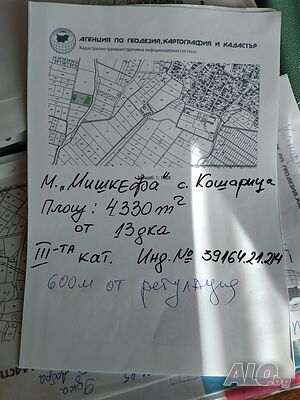 АГЕНЦИЯ ПО ГЕОДЕЗИЯ, КАРТОГРАФИЯ И КАДАСТЪР
Кадастрално-административна информационна система
М. "Мишкефа" с. Кошарица
Площ: 4330 m²
от 13 дка
III-та кат. Инд. № 39164.21.214
600м от регулация
ALO.bg